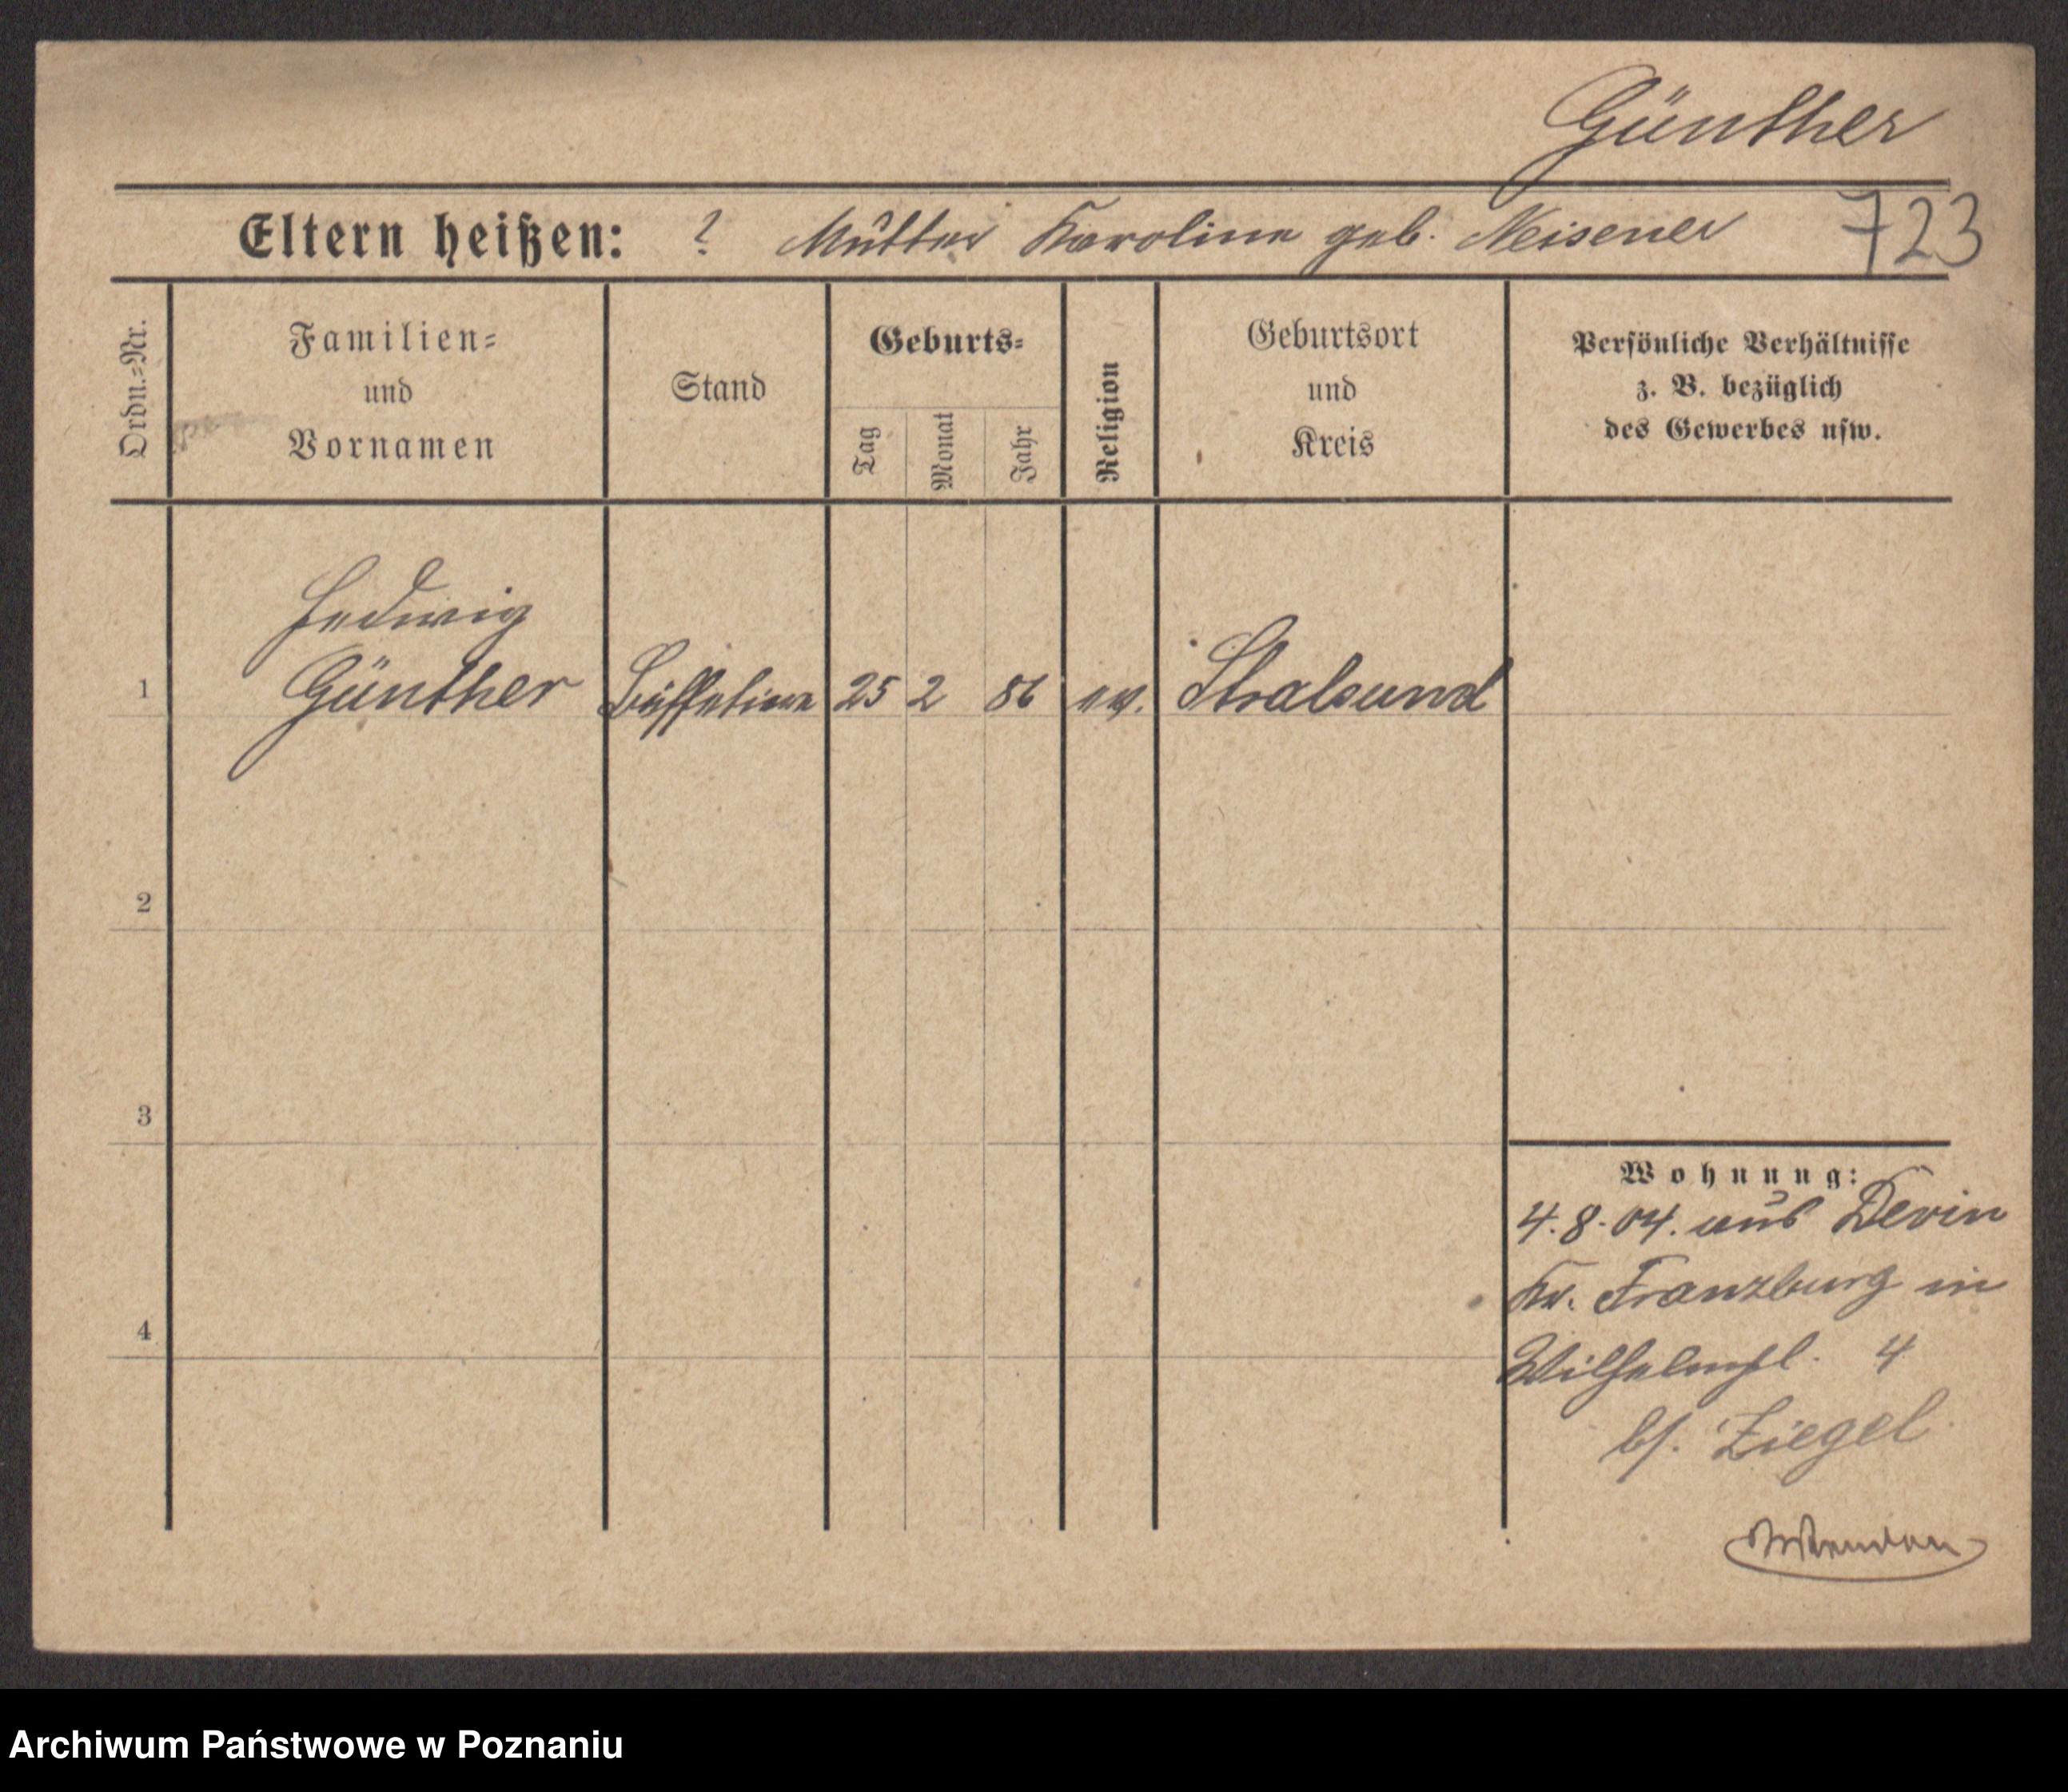 Günther
Eltern heißen: ? Mutter Karoline geb. Neisener
723
Ordn.=Nr.
Familien=
und
Vornamen
Stand
Geburts=
Tag
Monat
Jahr
Religion
Geburtsort
und
Kreis
Persönliche Verhältnisse
z. B. bezüglich
des Gewerbes usw.
Hedwig
1 Günther Büffetiere 25 2 86 ev. Stralsund
2
3
4
Wohnung:
4.8.04. aus Devin
Kr. Franzburg in
Wilhelmpl. 4
b/. Ziegel
Archiwum Państwowe w Poznaniu